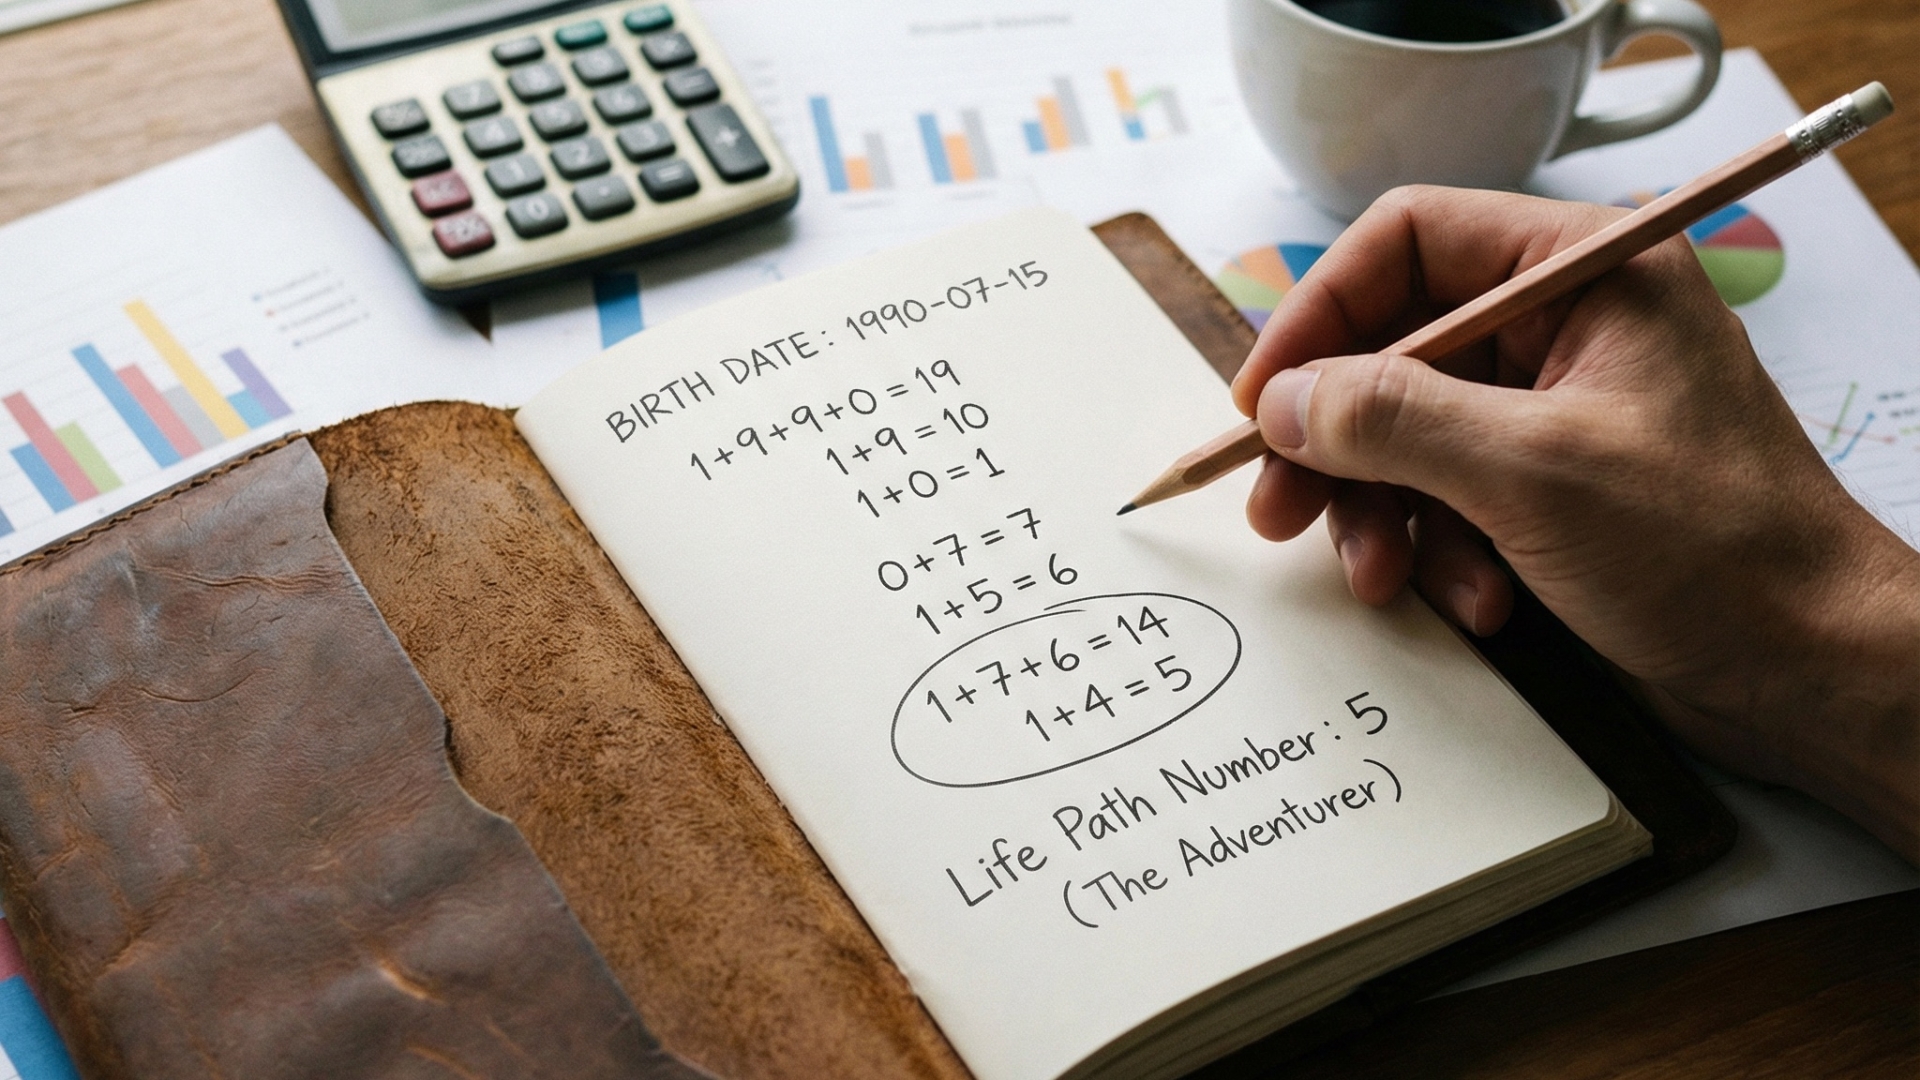 BIRTH DATE: 1990-07-15
1+9+9+0=19
1+9=10
1+0=1
0+7=7
1+5=6
1+7+6=14
1+4=5
Life Path Number: 5
(The Adventurer)